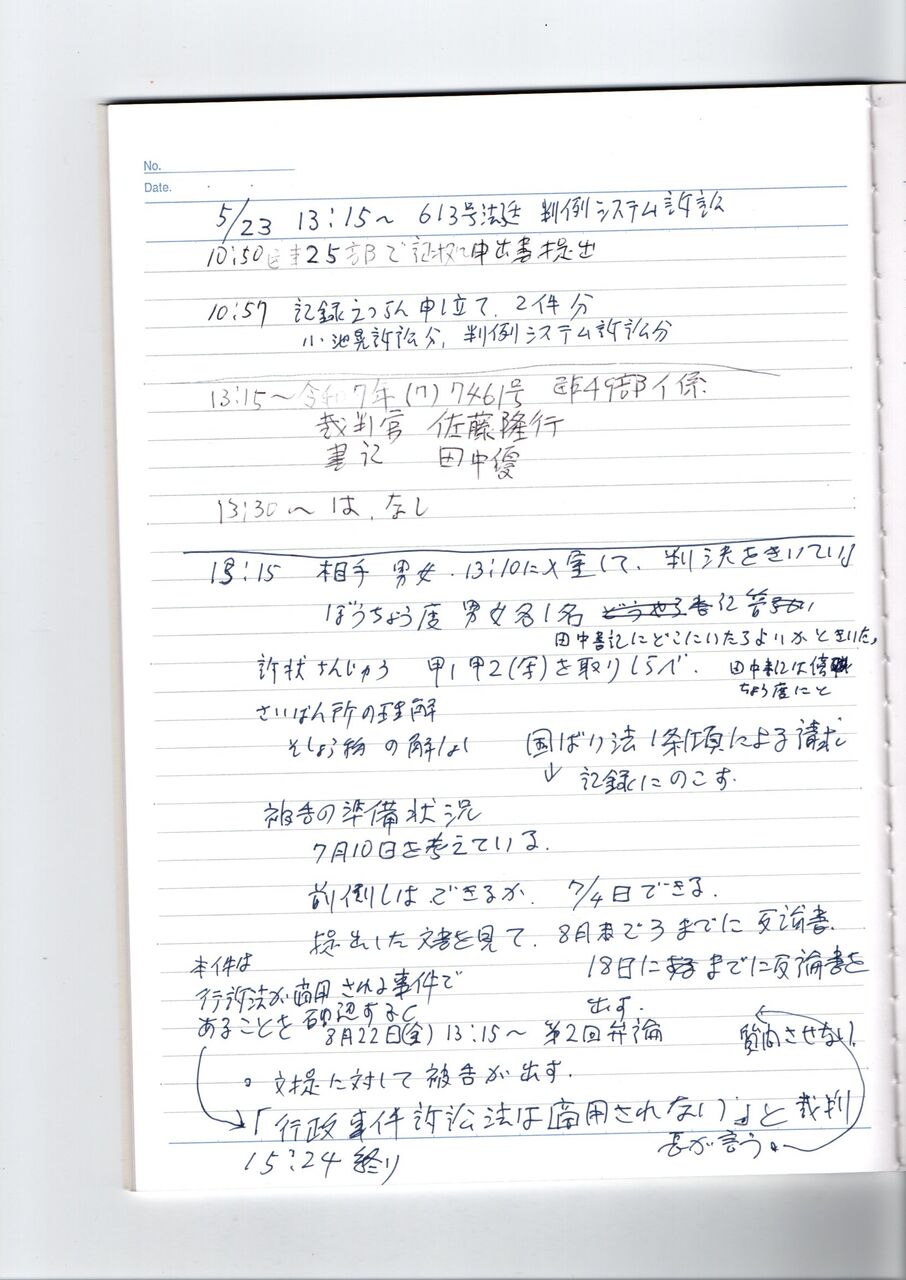 No.
Date.
5/23 13:15～ 613号法廷 判例システム訴訟
10:50 民事25部で証拠申出書提出
10:57 記録えつらん申し立て. 2件分
小池晃訴訟分, 判例システム訴訟分
13:15～令和7年(ワ)7461号 民49部イ係
裁判官 佐藤隆行
書記 田中優
13:30～は、なし
13:15 相手 男女. 13:10に入室して、判決をきいている
ぼうちょう席 男女各1名
田中書記にどこにいたらよいかときいた。
訴状ちんじゅつ 甲1甲2(写)を取りしらべ. 田中書記は傍
ちょう席にと
さいばん所の理解
そしょう物の 国ばい法1条1項による請求
↓ 記録にのこす.
被告の準備状況
7月10日を考えている.
前倒しはできるか. 7/4日できる.
提出した文書を見て. 8月 までに反論書.
18日に までに反論書を
出す.
本件は
行訴法が適用される事件で
あることを確認すると
8月22日(金) 13:15～ 第2回弁論
質問させない.
。文提に対して被告が出す.
「行政事件訴訟法は適用されない」と裁判
長が言う。
15:24 終り